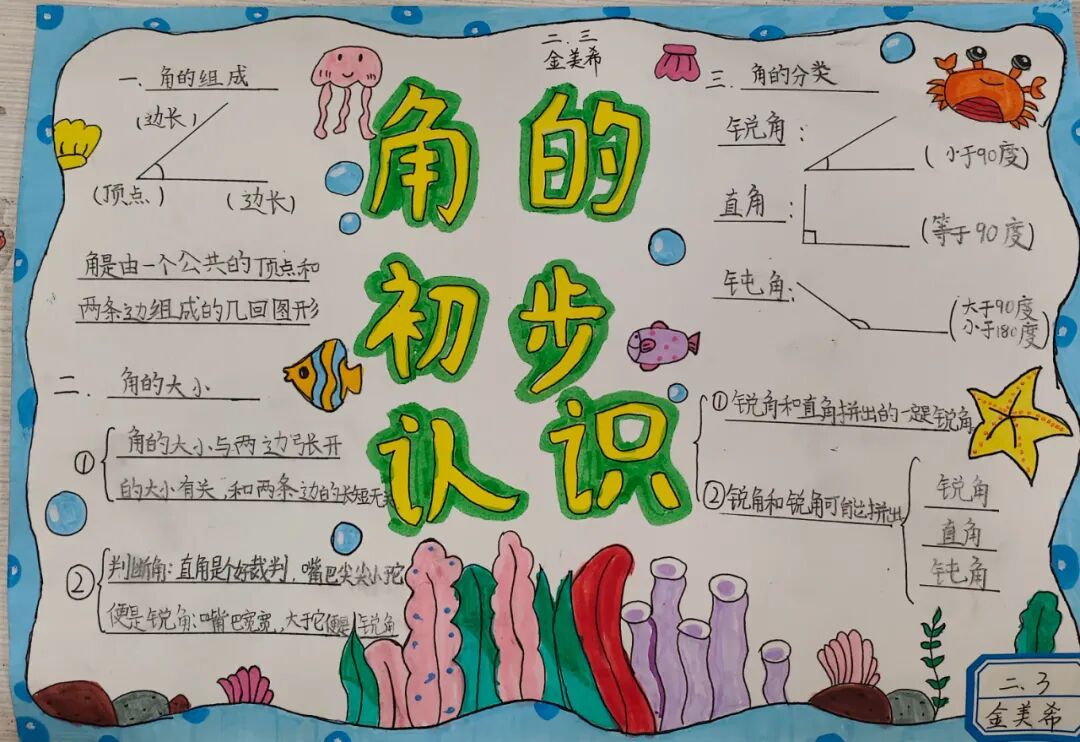 二.三
金美希
角的
初步
认识
一.角的组成
(边长)
(顶点)
(边长)
角是由一个公共的顶点和
两条边组成的几回图形
二.角的大小
①角的大小与两边张开
的大小有关,和两条边的长短无关
②判断角:直角是个好裁判,嘴巴尖尖小于它
便是锐角;嘴巴宽宽,大于它便是锐角
三.角的分类
锐角:(小于90度)
直角:(等于90度)
钝角:(大于90度
小于180度)
①锐角和直角拼出的一定是锐角
②锐角和锐角可能拼出
锐角
直角
钝角
二.3
金美希